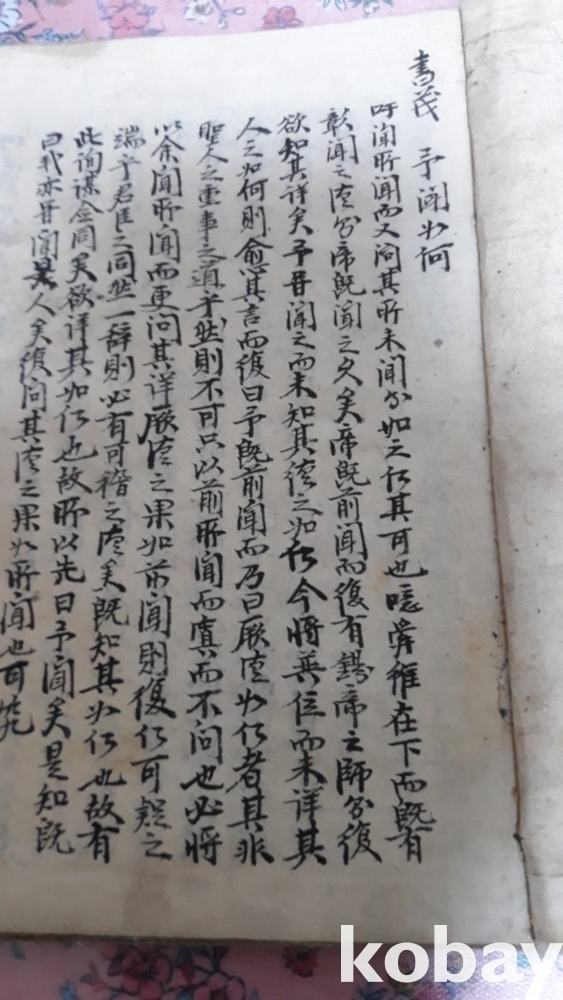 書義 予聞如何
吁聞所聞而又問其所未聞兮如之何其可也噫舜雖在下而旣有
彰聞之德兮帝旣聞之久矣帝旣前聞而復有錫帝之師兮復
欲知其詳矣予曾聞之而未知其德之如何今將巽位而未詳其
人之如何則兪其言而復曰予旣前聞而乃曰厥德如何者其非
聖人之重事之道乎然則不可只以前所聞而寘而不問也必將
以余聞所聞而更問其詳厥德之果如前聞則復何可疑之
端乎君臣之同然一辞則必有可稽之德矣旣知其如何也故有
此詢謀僉同矣欲詳其如何也故所以先曰予聞矣是知旣
曰我亦曾聞是人矣復問其德之果如所聞也可究
kobay